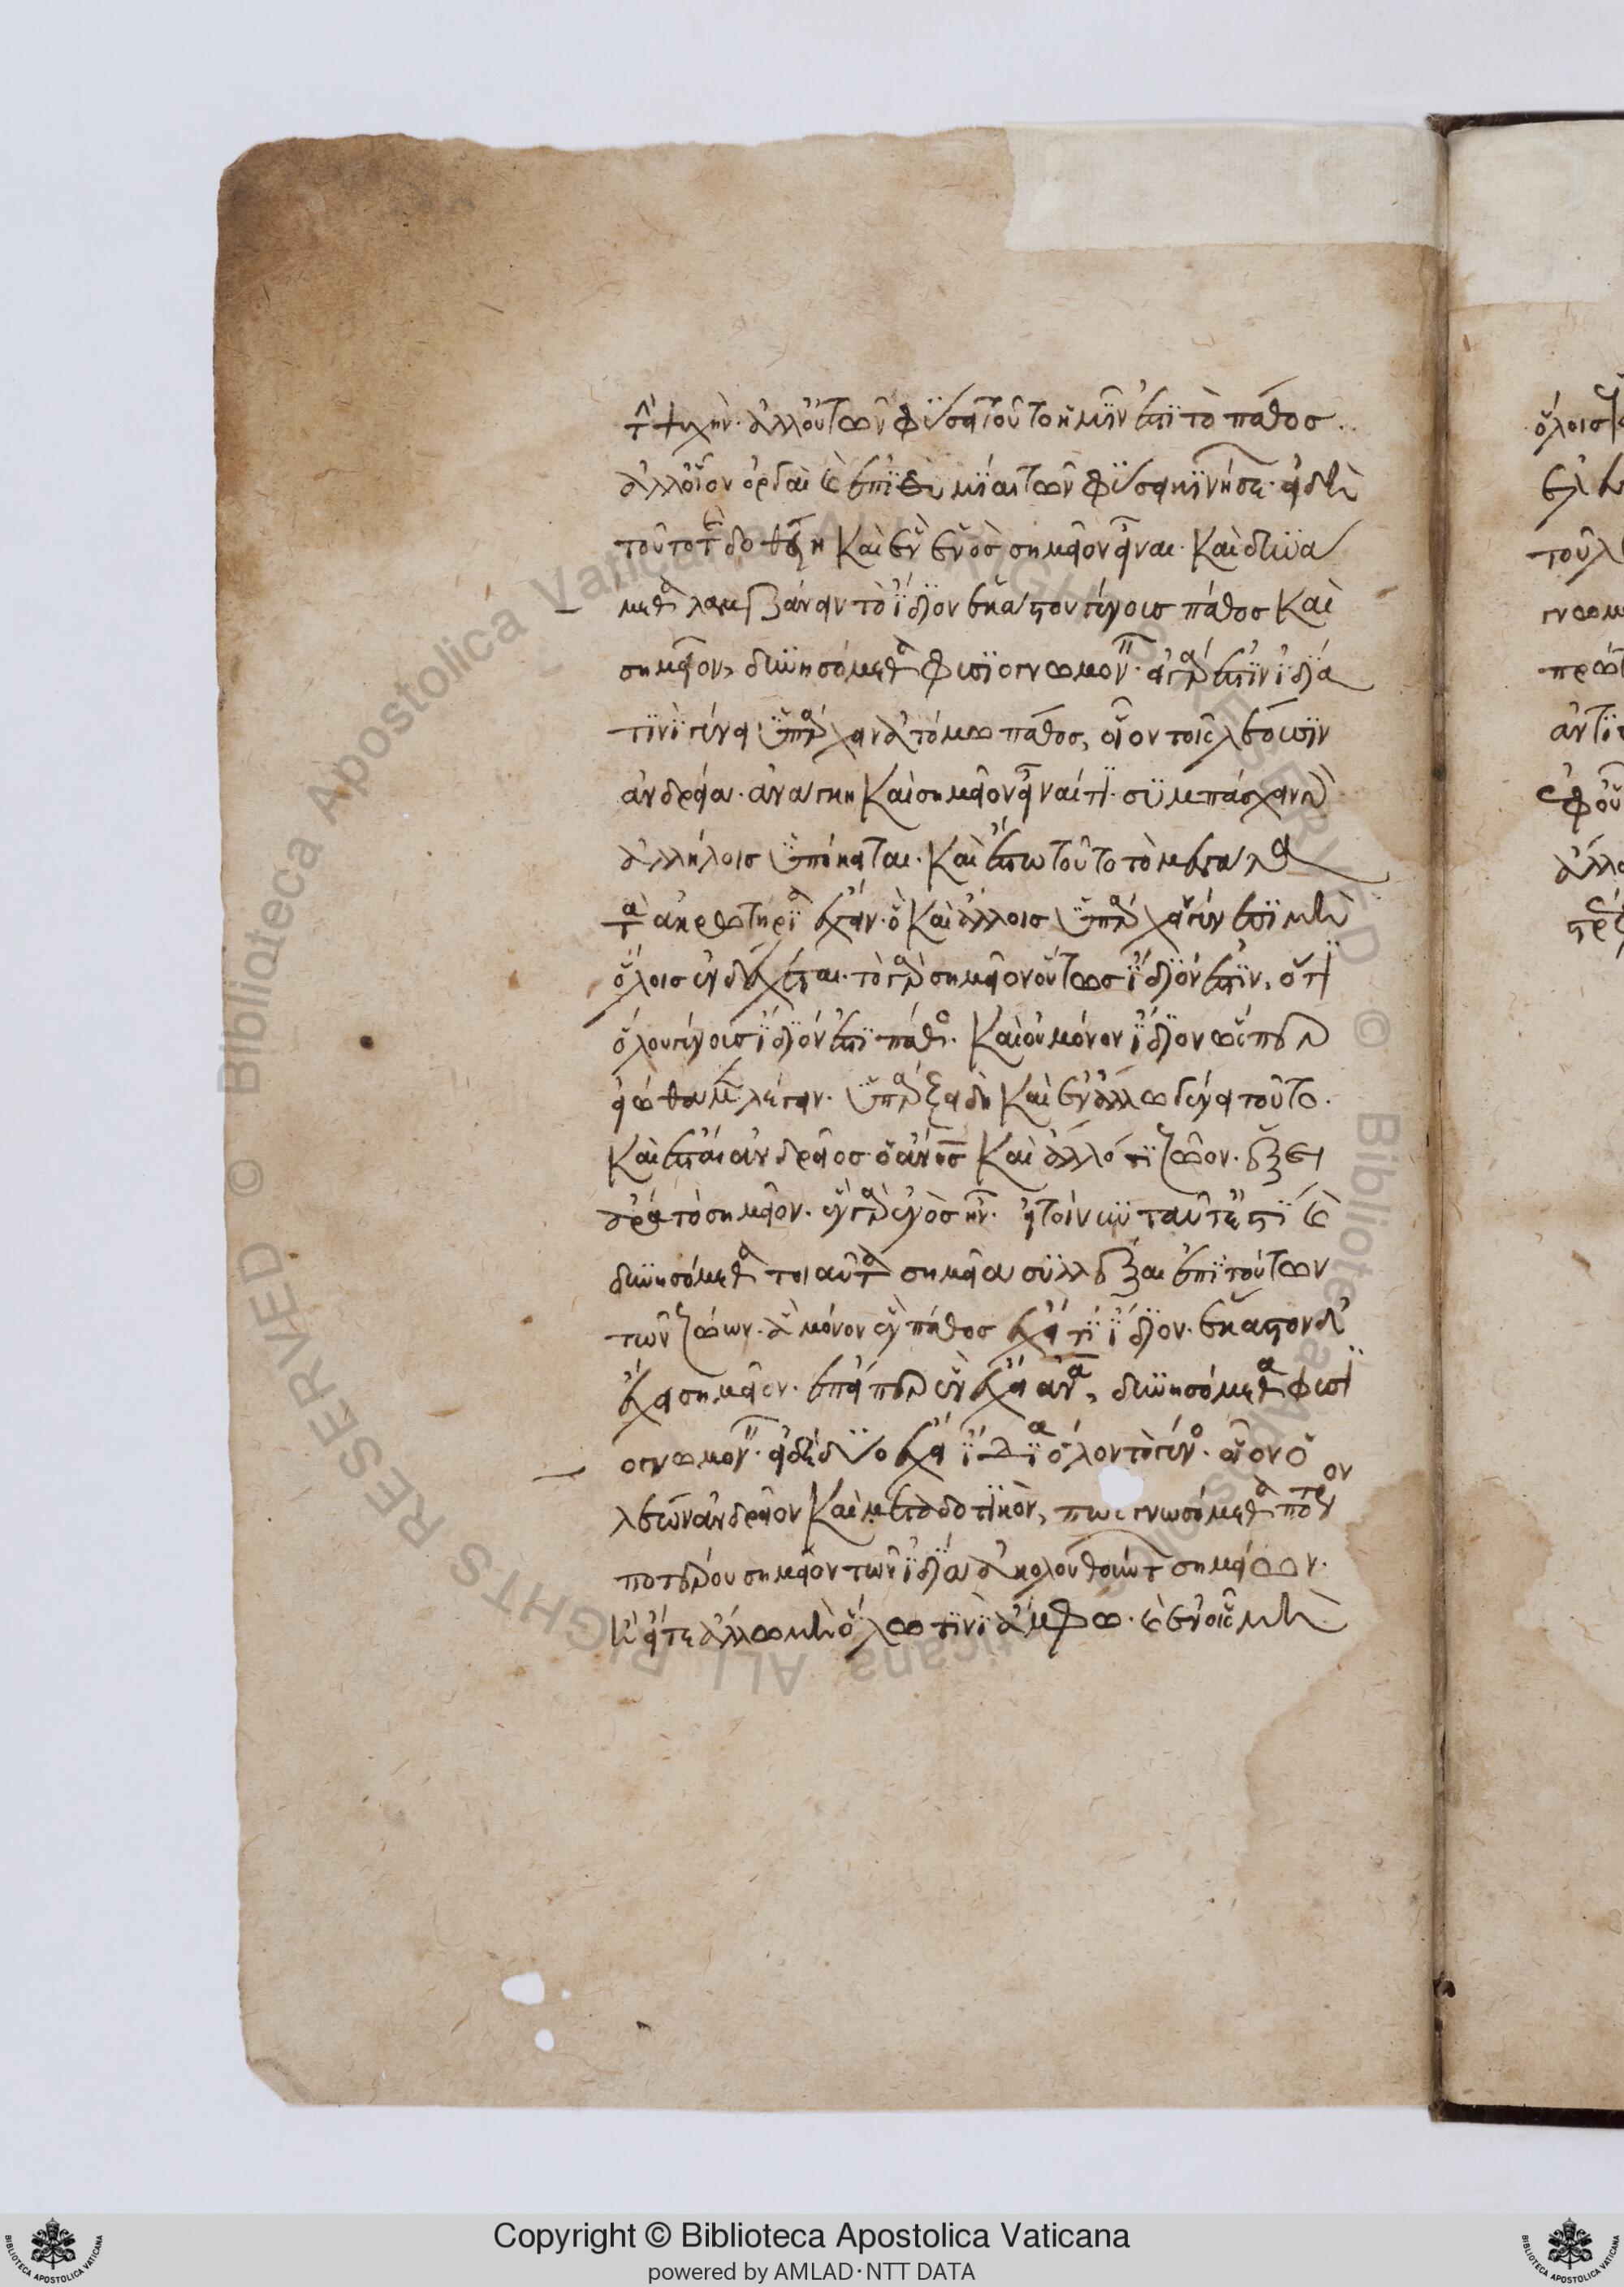 τὴν ψυχήν· ἀλλ' οὐ τῶν φύσει τοῦτο ἡμῖν ἐστὶ τὸ πάθος.
ἀλλ' οἷον ὀργαὶ καὶ ἐπιθυμίαι τῶν φύσει κινήσεων· εἰ δὴ
τοῦτό τε δοθείη καὶ ἓν ἑνὸς σημεῖον εἶναι· καὶ δυναί
μεθα λαμβάνειν τὸ ἴδιον ἑκάστου γένους πάθος καὶ
σημεῖον, δυνησόμεθα φυσιογνωμονεῖν· εἰ γάρ ἐστιν ἰδία
τινὶ γένει ὑπάρχον ἀτόμω πάθος, οἷον τοῖς λέουσιν
ἀνδρεία· ἀνάγκη καὶ σημεῖον εἶναί τι· συμπάσχειν γὰρ
ἀλλήλοις ὑπόκειται· καὶ ἔστω τοῦτο τὸ μεγάλα
τὰ ἀκρωτήρια ἔχειν· ὃ καὶ ἄλλοις ὑπάρχει γένεσι μὴ
ὅλοις ἐνδέχεται· τὸ γὰρ σημεῖον οὕτως ἴδιόν ἐστιν, ὅτι
ὅλου γένους ἴδιόν ἐστι πάθος· καὶ οὐ μόνον ἴδιον ὥσπερ
εἰώθαμεν λέγειν· ὑπάρξει δὴ καὶ ἐν ἄλλω γένει τοῦτο·
καὶ ἔσται ἀνδρεῖος ὁ ἄνθρωπος καὶ ἄλλό τι ζῶον· ἕξει
ἄρα τὸ σημεῖον· ἓν γὰρ ἑνὸς ἦν· εἰ τοίνυν ταῦτ' ἐστὶ καὶ
δυνησόμεθα τοιαῦτα σημεῖα συλλέξαι ἐπὶ τούτων
τῶν ζώων· ἃ μόνον ἓν πάθος ἔχει τι ἴδιον· ἕκαστον δ'
ἔχει σημεῖον· ἐπείπερ ἓν ἔχειν ἀνάγκη, δυνησόμεθα φυσι
ογνωμονεῖν· εἰ δὲ δύο ἔχει ἴδια ὅλον τὸ γένος· οἷον ὁ
λέων ἀνδρεῖον καὶ μεταδοτικὸν, πῶς γνωσόμεθα πότερον
ποτέρου σημεῖον τῶν ἰδία ἀκολουθούντων σημείων·
ἢ εἴ τε ἄλλω μὴ ὅλω τινὶ ἄμφω· καὶ ἐν οἷς μὴ
Copyright © Biblioteca Apostolica Vaticana
powered by AMLAD·NTT DATA